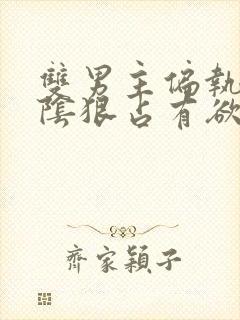 雙男主偏執
陰狠占有欲
齊家穎子